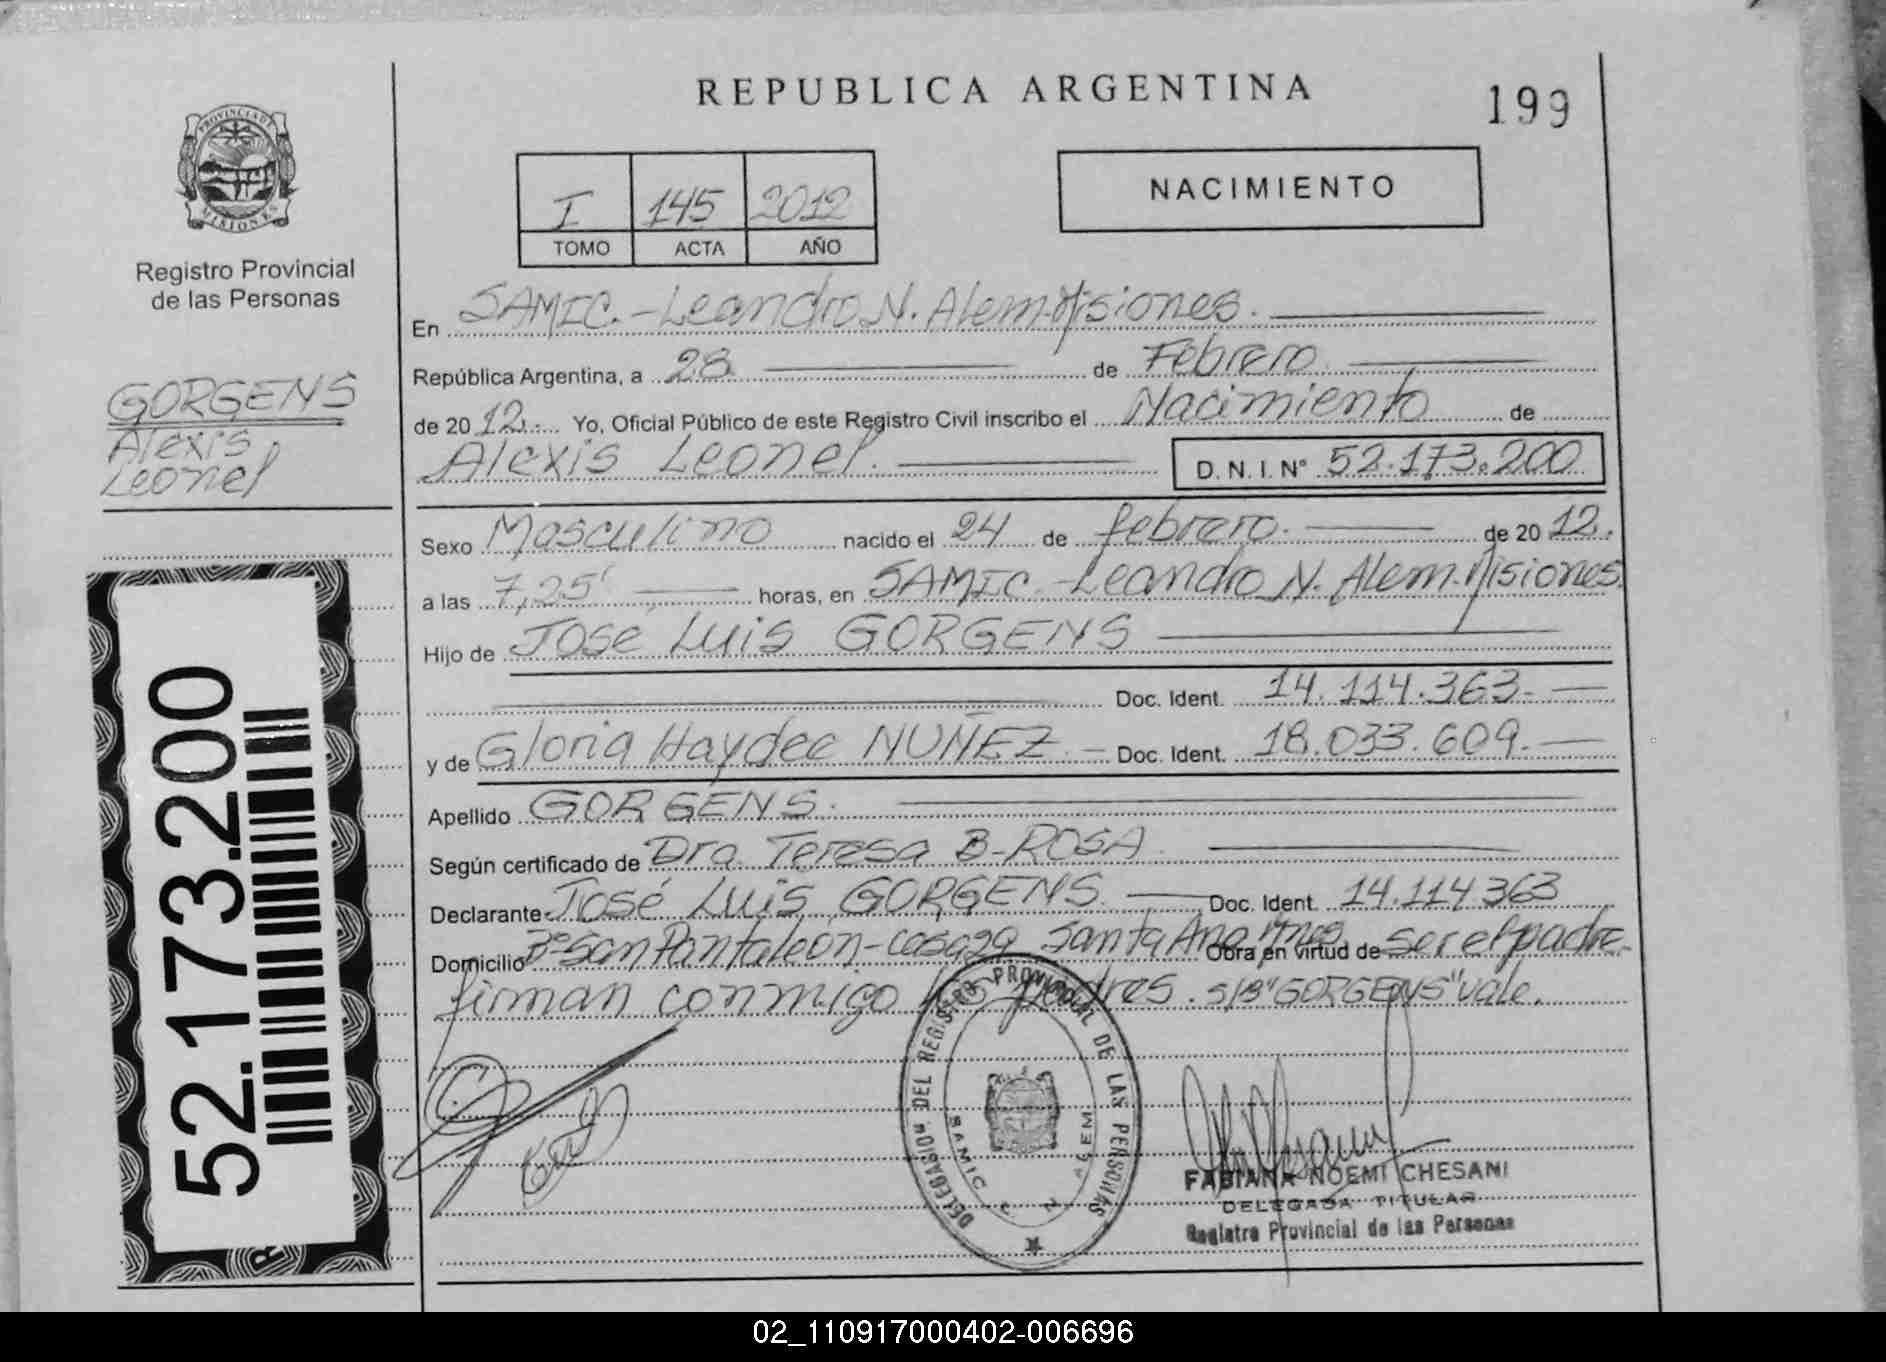 REPUBLICA ARGENTINA
199
PROVINCIA DE MISIONES
Registro Provincial
de las Personas
I 145 2012
TOMO ACTA AÑO
NACIMIENTO
GORGENS
Alexis
Leonel
En SAMIC.-Leandro N. Alem-Misiones.
República Argentina, a 28 de Febrero.
de 2012. Yo, Oficial Público de este Registro Civil inscribo el Nacimiento de
Alexis Leonel. D.N.I. N° 52.173.200
Sexo Masculino nacido el 24 de febrero. de 2012.
a las 7,25' horas, en SAMIC.-Leandro N. Alem-Misiones.
Hijo de José Luis GORGENS
Doc. Ident. 14.114.363.
y de Gloria Haydee NUÑEZ.- Doc. Ident. 18.033.609.
Apellido GORGENS.
Según certificado de Dra. Teresa B-ROSA
Declarante José Luis GORGENS. Doc. Ident. 14.114363
Domicilio Bº San Pantaleón-casa 29 Santa Ana Mnes Obra en virtud de ser el padre.
firman conmigo los padres. S/B "GORGENS" vale.
52.173.200
DELEGACION DEL REGISTRO PROVINCIAL DE LAS PERSONAS
SAMIC L N ALEM
FABIANA NOEMI CHESANI
DELEGADA TITULAR
Registro Provincial de las Personas
02_110917000402-006696